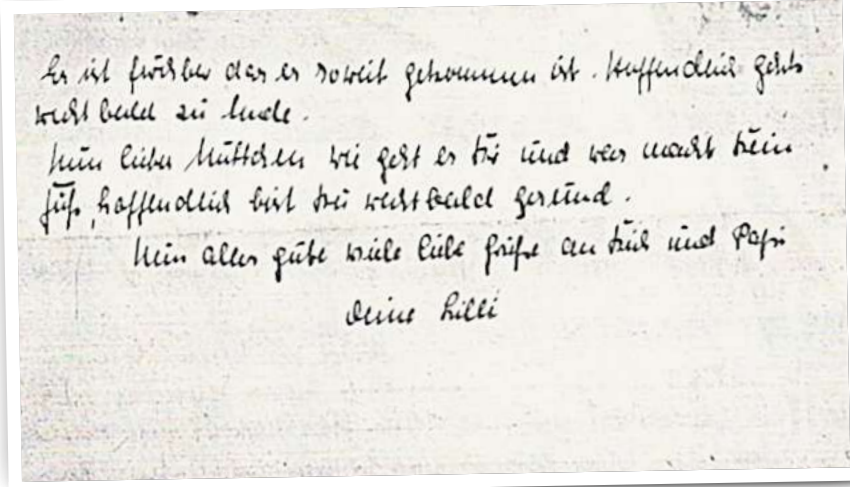 Es ist furchbar das es soweit gekommen ist. Hoffendlich gehts
recht bald zu Ende.
Nun liebes Muttchen wie geht es Dir und was macht Dein
Fuß, hoffendlich bist Du recht bald gesund.
Nun alles gute viele liebe Grüße an Dich und Papi
Deine Lilli